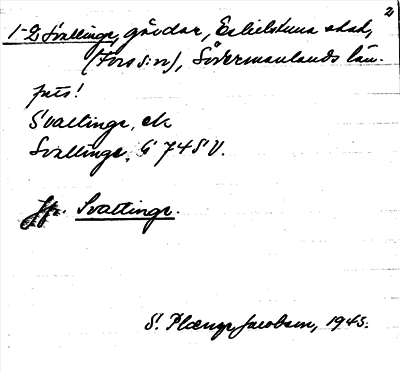 2
1-2 Svallinge, gårdar, Eskilstuna stad,
(Fors s:n), Södermanlands län.
Svallinge, ek
Svallinge, G 74 S V.
Jfr. Svallinge.
S. Plænge Jacobson, 1945.